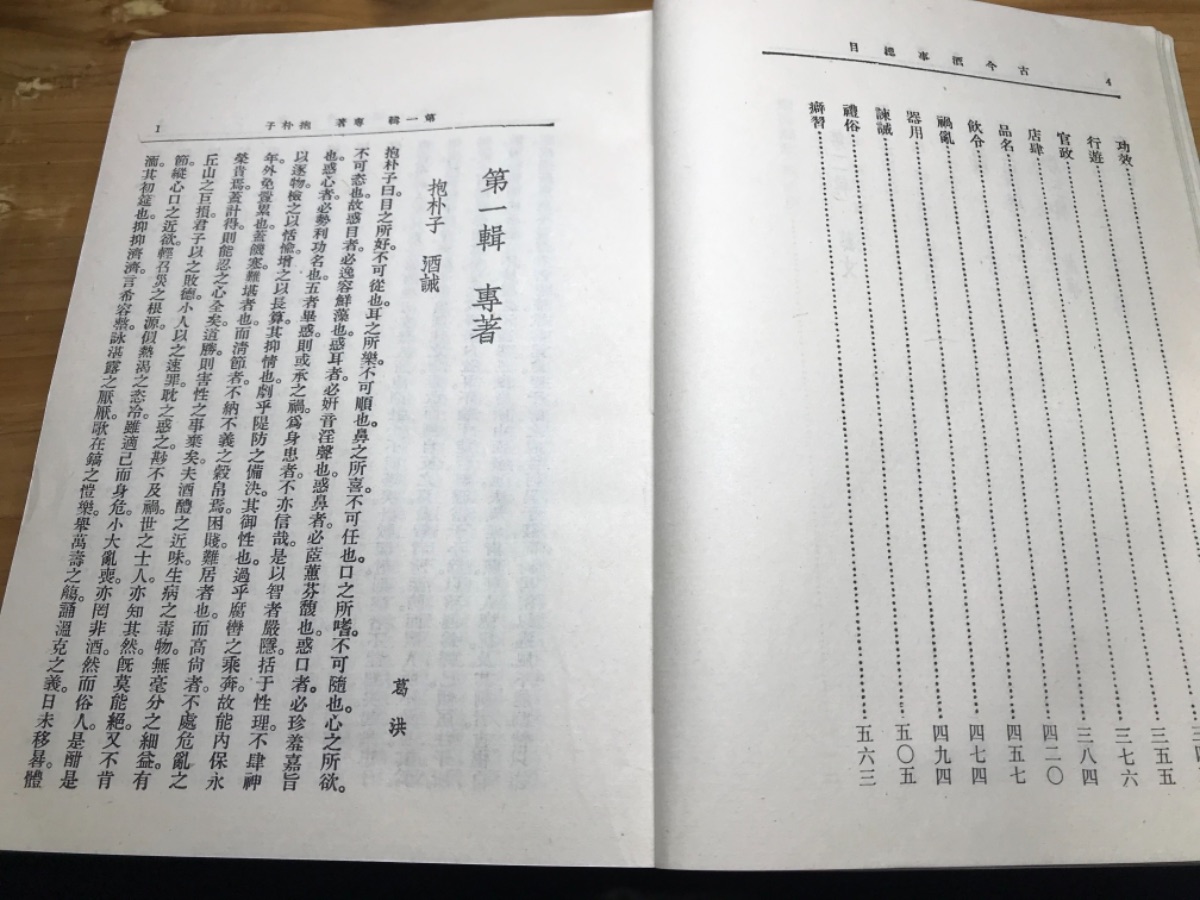 古今酒事總目 4
功效
行遊
官政 三五五
店肆 三七六
品名 三八四
飲令 四二〇
禍亂 四五七
器用 四七四
諫誡 四九四
禮俗 五〇五
癖習 五六三
第一輯 專著 抱朴子 1
第一輯 專著
抱朴子 酒誡
葛洪
抱朴子曰目之所好不可從也耳之所樂不可順也。鼻之所喜不可任也口之所嗜不可隨也。心之所欲。
不可恣也故惑目者必逸容鮮藻也惑耳者必妍音淫聲也惑鼻者必茝蕙芬馥也。惑口者必珍羞嘉旨
也惑心者必勢利功名也五者畢惑則或承之禍爲身患者不亦信哉是以智者嚴隱括于性理不肆神
以逐物檢之以恬愉增之以長算其抑情也劇乎隄防之備決其御性也過乎腐轡之乘奔故能內保永
年外免釁累也蓋饑寒難堪者也而清節者不納不義之穀帛焉困賤難居者也而高尙者不處危亂之
榮貴焉蓋計得則能忍之心全矣道勝則害性之事棄矣夫酒醴之近味生病之毒物無毫分之細益有
丘山之巨損君子以之敗德小人以之速罪耽之惑之尟不及禍。世之士人亦知其然旣莫能絕又不肯
節縱心口之近欲輕召災之根源似熱渴之恣冷雖適己而身危。小大亂喪亦罔非酒然而俗人是酣是
湎。其初筵也抑抑濟濟言希容整詠湛露之厭厭歌在鎬之愷樂舉萬壽之觴誦溫克之義日未移晷體